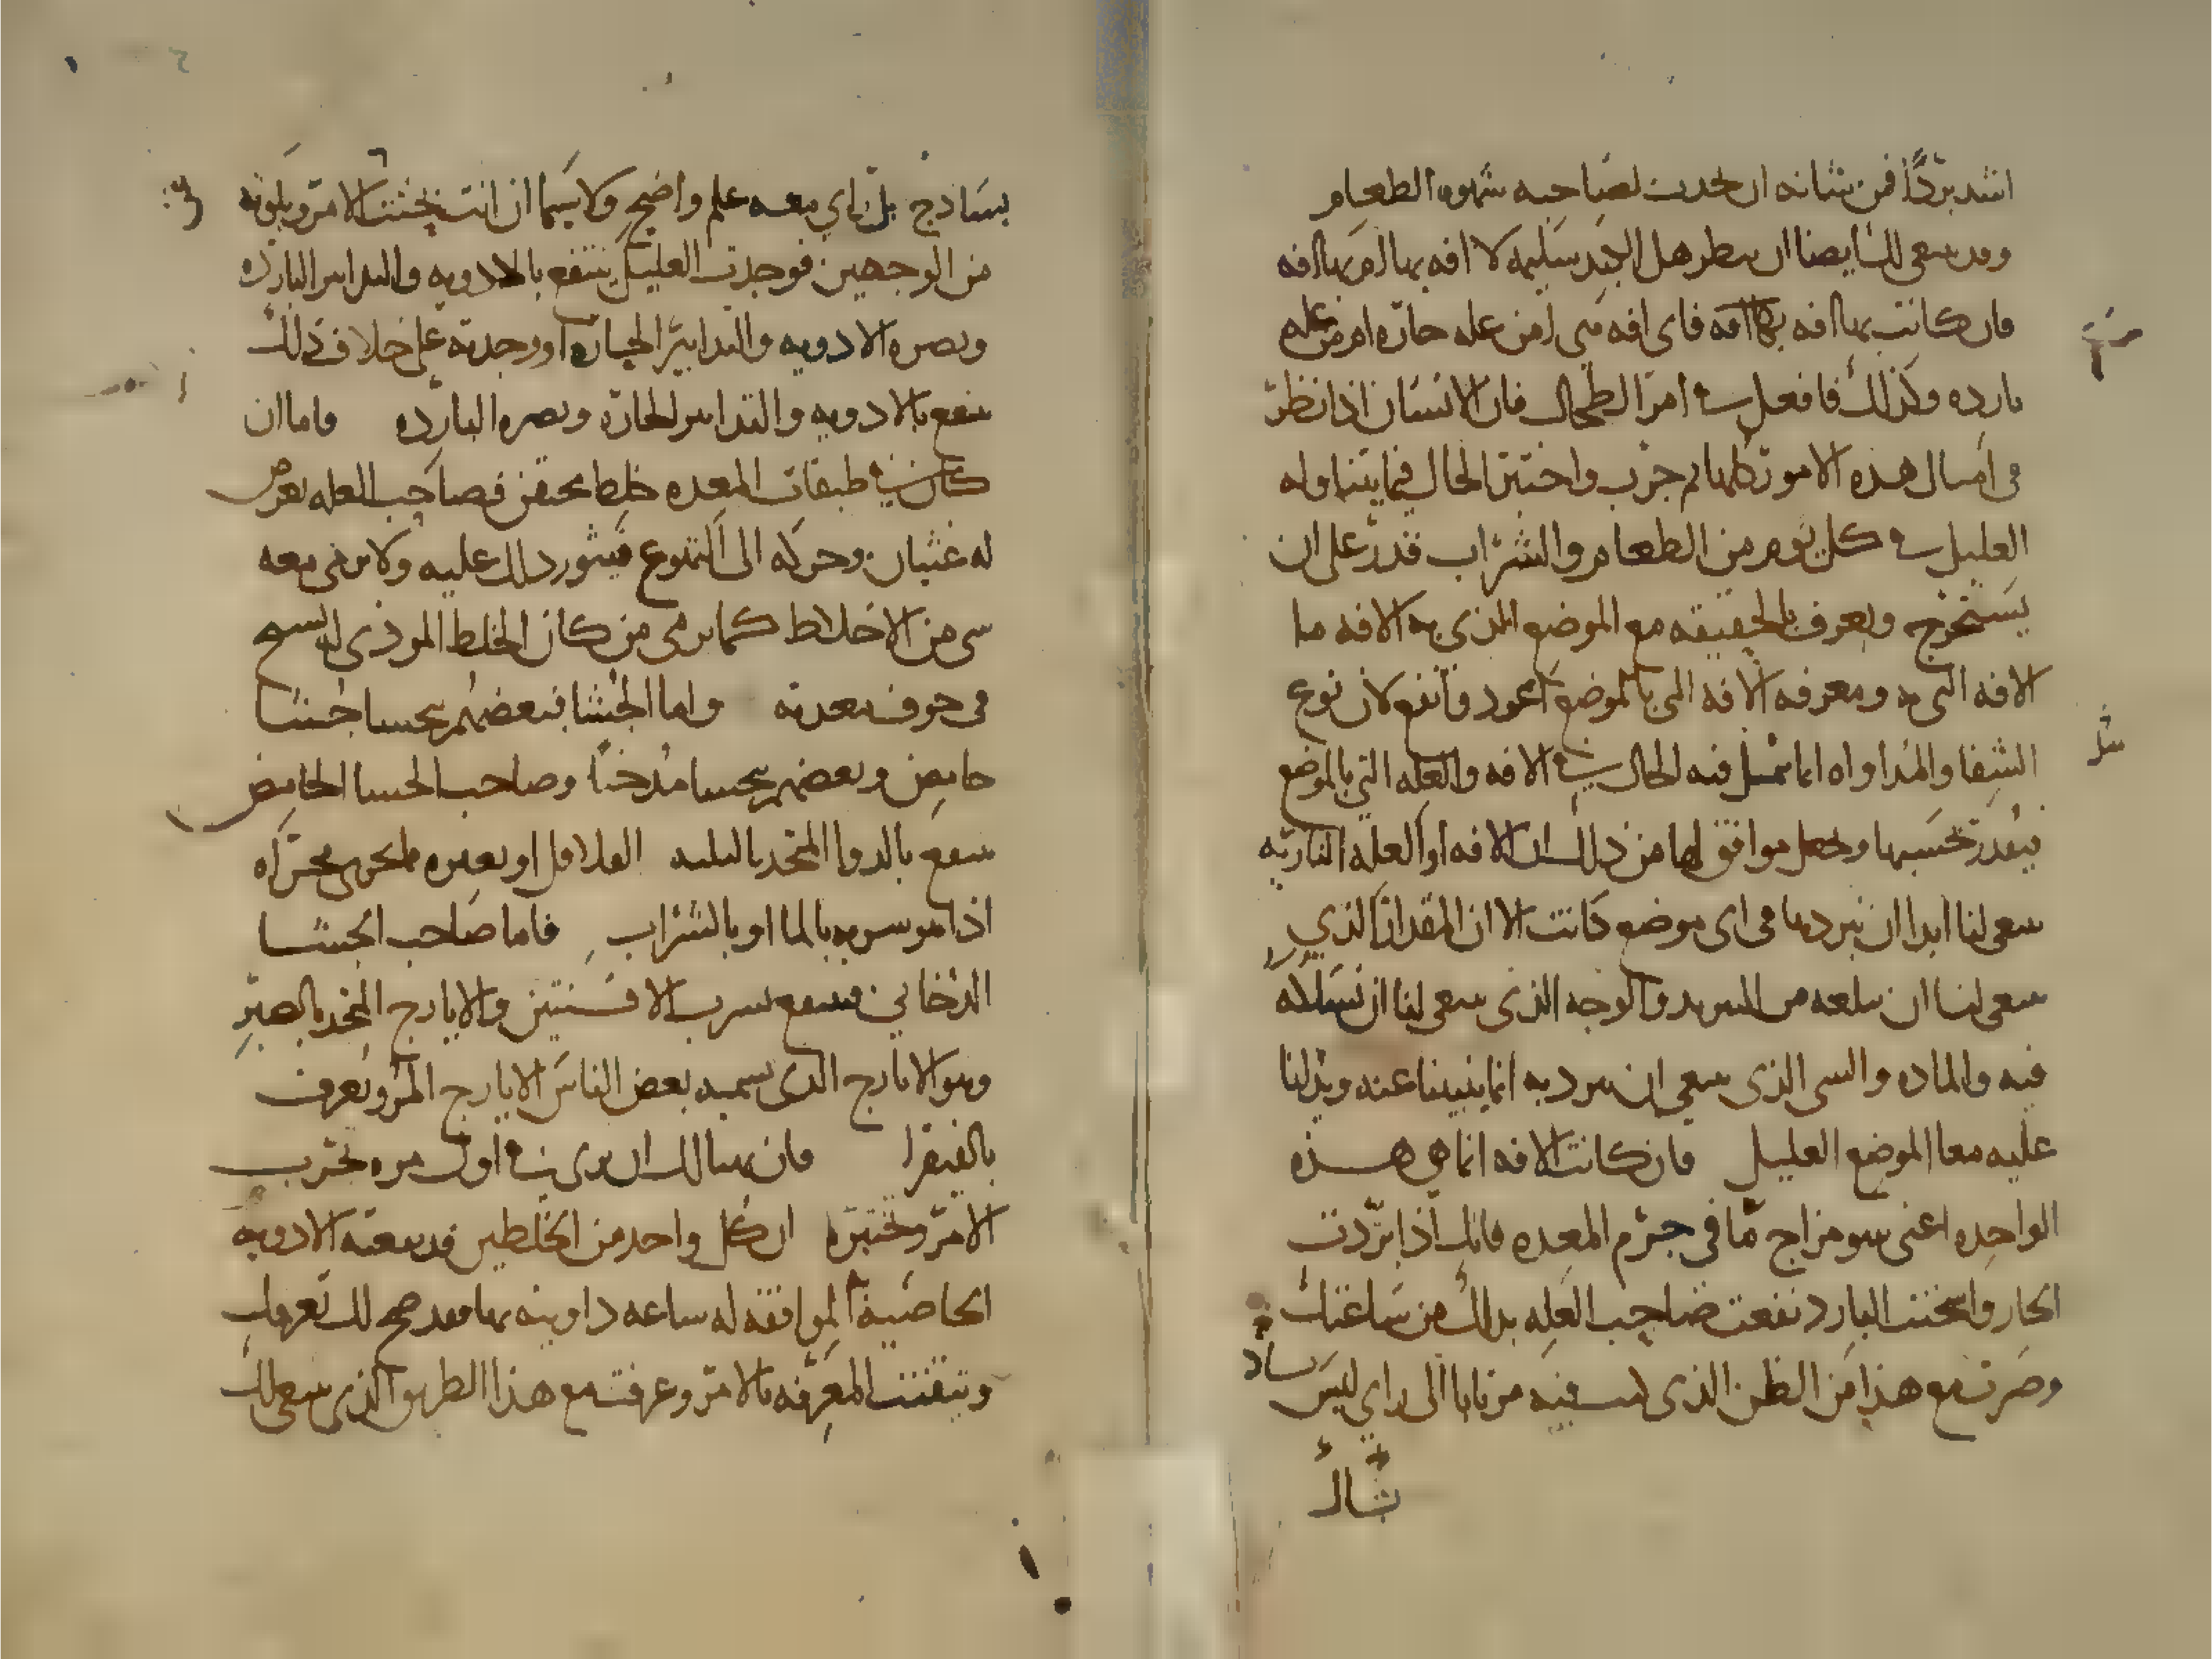 اشد بردا فمن شانه ان يحدث لصاحبه شهوه الطعام
وقد ينبغي لك ايضا ان تنظر هل الكبد سليمه لا افه بها ام بها افه
فان كانت بها افه فاي افه هي امن عله حاره ام من عله
بارده وكذلك فافعل في امر الطحال فان الانسان اذا نظر
في امثال هذه الامور كلها ثم جرب واختبر الحال فيما يتناوله
العليل في كل يوم من الطعام والشراب قدر على ان
يستخرج ويعرف بالحقيقه مع الموضع الذي به الافه ما
الافه التي به ومعرفه الافه التي بالموضع اعود وانفع لان نوع
الشفا والمداواه انما تمثل فيه الحال في الافه والعله التي بالموضع
فيقدر بحسبها ويجعل موافق لها من ذلك ان الافه او العله الناريه
ينبغي لنا ابدا ان نبردها في اي موضع كانت الا ان المقدار الذي
ينبغي لنا ان نبلغه من التبريد والوجه الذي ينبغي لنا ان نسلكه
فيه والماده والشي الذي ينبغي ان نبرد به انما ينبينا عنه ويدلنا
عليه معا الموضع العليل فان كانت الافه انما هي هذه
الواحده اعني سو مزاج ما في جرم المعده فانك اذا بردت
الحار واسخنت البارد نفعت صاحب العله بذلك من ساعتك
وصرت مع هذا من الظن الذي لست فيه مرتابا الى راي ليس
بساذج بل راي معه علم واضح ولا سيما ان انت بحثت الامر وبلوته
من الوجهين فوجدت العليل ينتفع بالادويه والتدابير البارده
وتضره الادويه والتدابير الحاره او وجدته على خلاف ذلك
ينتفع بالادويه والتدابير الحاره وتضره البارده فاما ان
كان في طبقات المعده خلط محتقن فصاحب العله يعرض
له غثيان وحركه الى التهوع فيثور ذلك عليه ولا يرمي معه
شي من الاخلاط كما يرمي من كان الخلط الموذي له يسبح
في جوف معدته واما الجشا فبعضهم يتجشا جشا
حامض وبعضهم يتجشا مدخنا وصاحب الجشا الحامض
ينتفع بالدوا المتخذ بالثلثه الفلافل او بغيره مما يجري مجراه
اذا هو شربه بالما او بالشراب فاما صاحب الجشا
الدخاني فينتفع بشرب الافسنتين والايارج المتخذ بالصبر
وهو الايارج الذي يسميه بعض الناس الايارج المر ويعرف
بالفيقرا فان تهيا لك ان ترى في اول مره تجرب
الامر وتختبره ان كل واحد من الخلطين قد نفعته الادويه
الخاصيه الموافقه له ساعه داويته بها فقد صح لك تعرفك
وتيقنت المعرفه بالامر وعرفت مع هذا الطريق الذي ينبغي لك